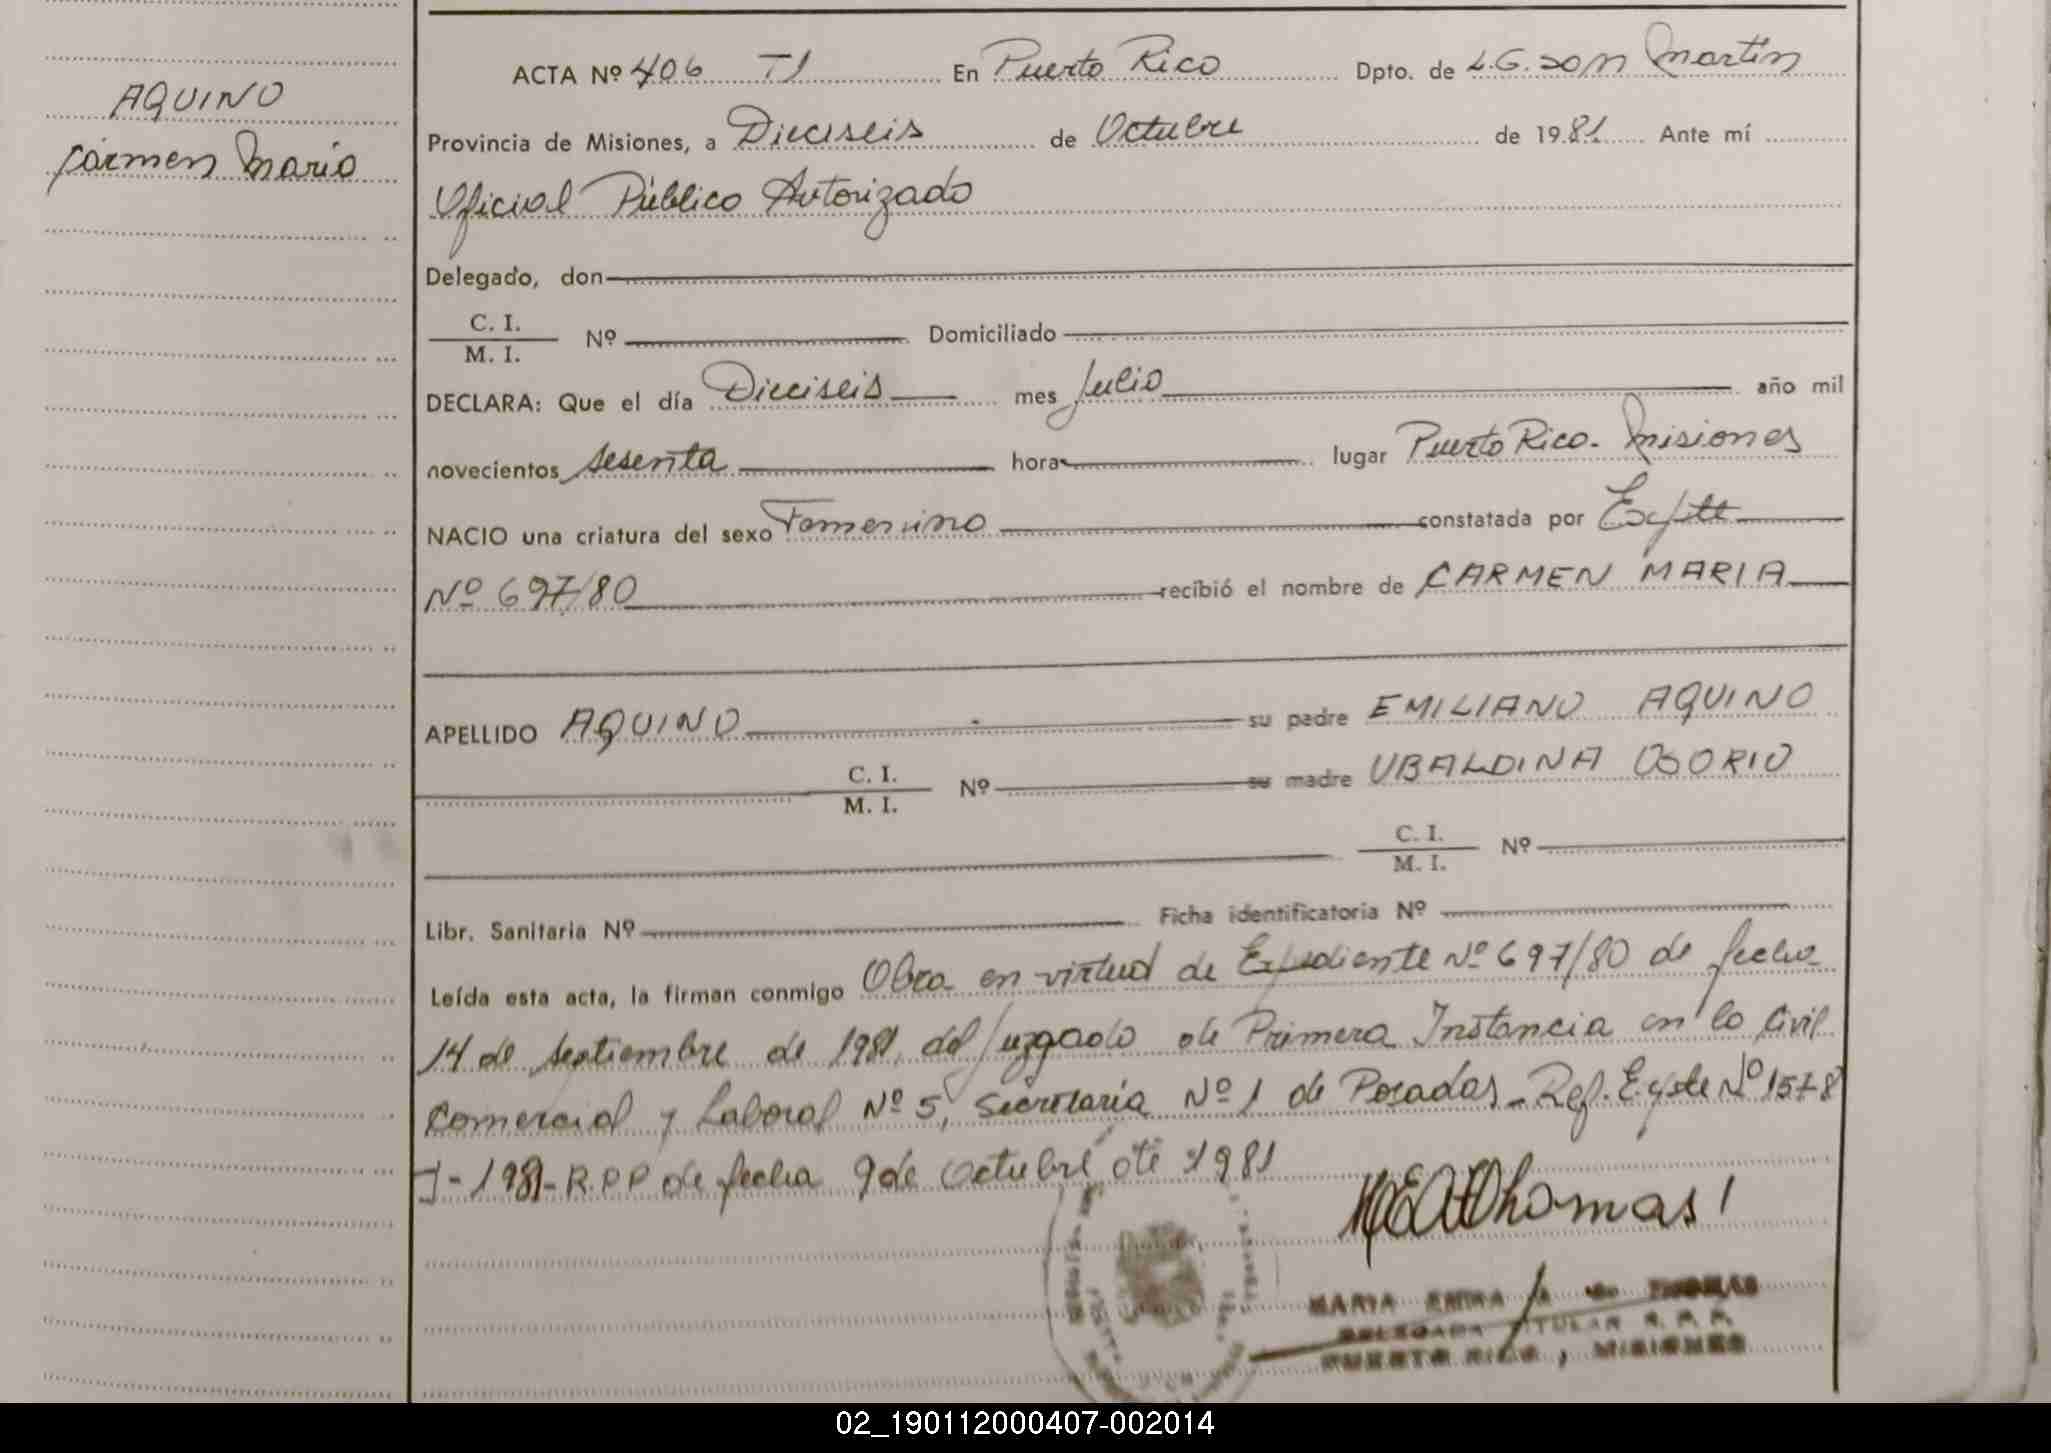 AQUINO
Carmen Maria
ACTA Nº 406 T1 En Puerto Rico Dpto. de L.G. San Martin
Provincia de Misiones, a Dieciseis de Octubre de 1981 Ante mí
Oficial Público Autorizado
Delegado, don
C. I.
M. I. Nº Domiciliado
DECLARA: Que el día Dieciseis mes Julio año mil
novecientos sesenta hora lugar Puerto Rico - Misiones
NACIO una criatura del sexo Femenino constatada por Expte
Nº 697/80 recibió el nombre de CARMEN MARIA
APELLIDO AQUINO su padre EMILIANO AQUINO
C. I.
M. I. Nº su madre UBALDINA OSORIO
C. I.
M. I. Nº
Libr. Sanitaria Nº Ficha identificatoria Nº
Leída esta acta, la firman conmigo Obra en virtud de Expediente Nº 697/80 de fecha
14 de septiembre de 1981, del Juzgado de Primera Instancia en lo Civil
Comercial y Laboral Nº 5, Secretaría Nº 1 de Posadas - Ref. Expte Nº 1578
J - 1981 - R.P.P de fecha 9 de Octubre de 1981
Thomas
MARIA EMMA de THOMAS
DELEGADA TITULAR R. P. P.
PUERTO RICO, MISIONES
02_190112000407-002014